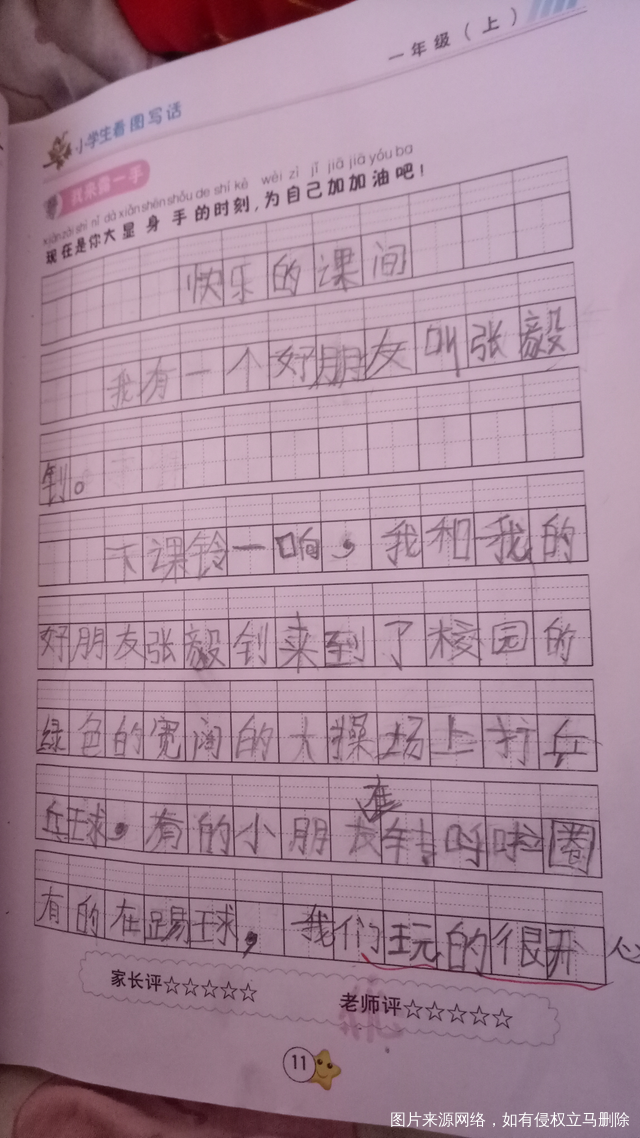 一年级（上）
小学生看图写话
我来露一手
xiàn zài shì nǐ dà xiǎn shēn shǒu de shí kè wèi zì jǐ jiā jiā yóu ba
现在是你大显身手的时刻,为自己加加油吧!
快乐的课间
我有一个好朋友叫张毅
钊。
下课铃一响，我和我的
好朋友张毅钊来到了校园的
绿色的宽阔的大操场上打乒
乓球，有的小朋友在转呼啦圈
有的在踢球，我们玩的很开心
家长评☆☆☆☆☆
老师评☆☆☆☆☆
11
图片来源网络，如有侵权立马删除